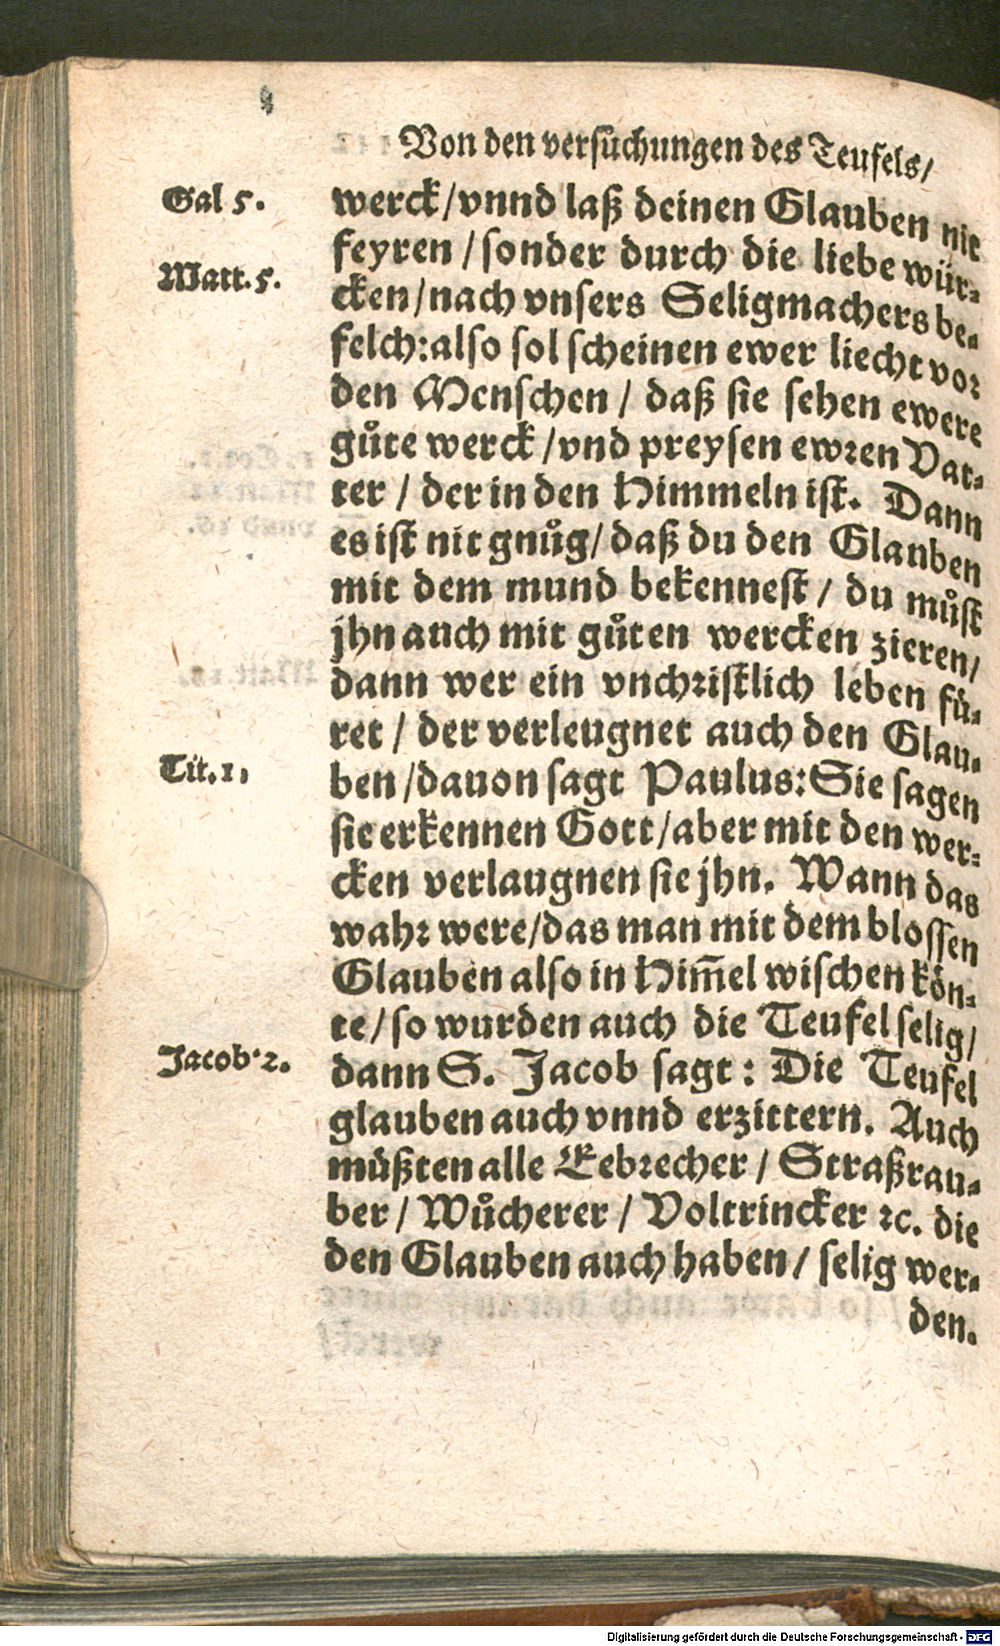 Von den versuchungen des Teufels/
Gal 5.
werck/vnnd laß deinen Glauben nit
feyren/sonder durch die liebe wür-
Matt. 5.
cken/nach vnsers Seligmachers be-
felch:also sol scheinen ewer liecht vor
den Menschen/ daß sie sehen ewere
gůte werck/vnd preysen ewren Vat-
ter/ der in den Himmeln ist. Dann
es ist nit gnůg/ daß du den Glauben
mit dem mund bekennest/ du můst
jhn auch mit gůten wercken zieren/
dann wer ein vnchristlich leben fü-
ret/ der verleugnet auch den Glau-
Tit. 1,
ben/dauon sagt Paulus:Sie sagen
sie erkennen Gott/aber mit den wer-
cken verlaugnen sie jhn. Wann das
wahr were/das man mit dem blossen
Glauben also in Him̃el wischen kön-
te/so wurden auch die Teufel selig/
Jacob. 2.
dann S. Jacob sagt: Die Teufel
glauben auch vnnd erzittern. Auch
müßten alle Eebrecher/ Straßrau-
ber/ Wůcherer/ Voltrincker ꝛc. die
den Glauben auch haben/ selig wer-
den.
Digitalisierung gefördert durch die Deutsche Forschungsgemeinschaft - DFG